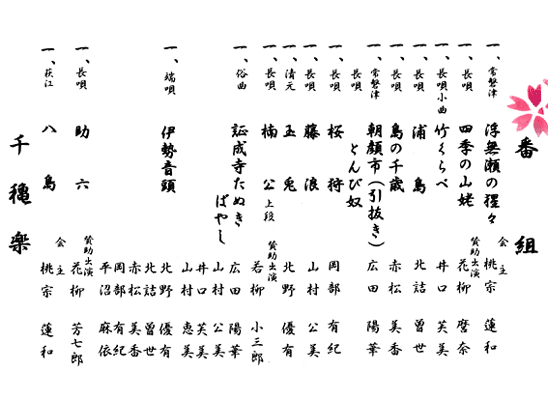 番組
一、常磐津 浮無瀬の猩々 会主 桃宗 蓮和
一、長唄 四季の山姥 賛助出演 花柳 麿奈
一、長唄小曲 竹くらべ 井口 芙美
一、長唄 浦島 北詰 曽世
一、長唄 島の千歳 赤松 美香
一、常磐津 朝顔市(引抜き) 広田 陽華
長唄 とんび奴
一、長唄 桜狩 岡部 有紀
一、長唄 藤浪 山村 公美
一、清元 玉兎 北野 優有
一、長唄 楠公 上段 賛助出演 若柳 小三郎
一、俗曲 証成寺たぬきばやし 広田 陽華
山村 公美
井口 芙美
山村 恵美
一、端唄 伊勢音頭 北野 優有
北詰 曽世
赤松 美香
岡部 有紀
平沼 麻依
一、長唄 助六 賛助出演 花柳 芳七郎
一、荻江 八島 会主 桃宗 蓮和
千穐楽